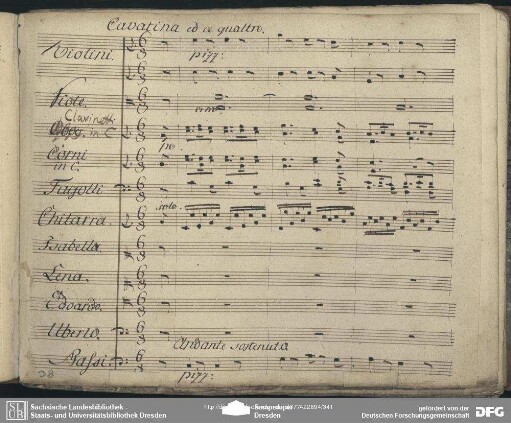 Cavatina ed a quattro.
Violini.
pizz:
Viole.
Clarinetti
Oboe. in C
po
Corni
in C.
Fagotti
solo.
Chitarra.
Isabella.
Lena.
Edoardo.
Uberto.
Andante sostenuto
Bassi.
pizz:
Sächsische Landesbibliothek
Staats- und Universitätsbibliothek Dresden
gefördert von der
Deutschen Forschungsgemeinschaft
DFG